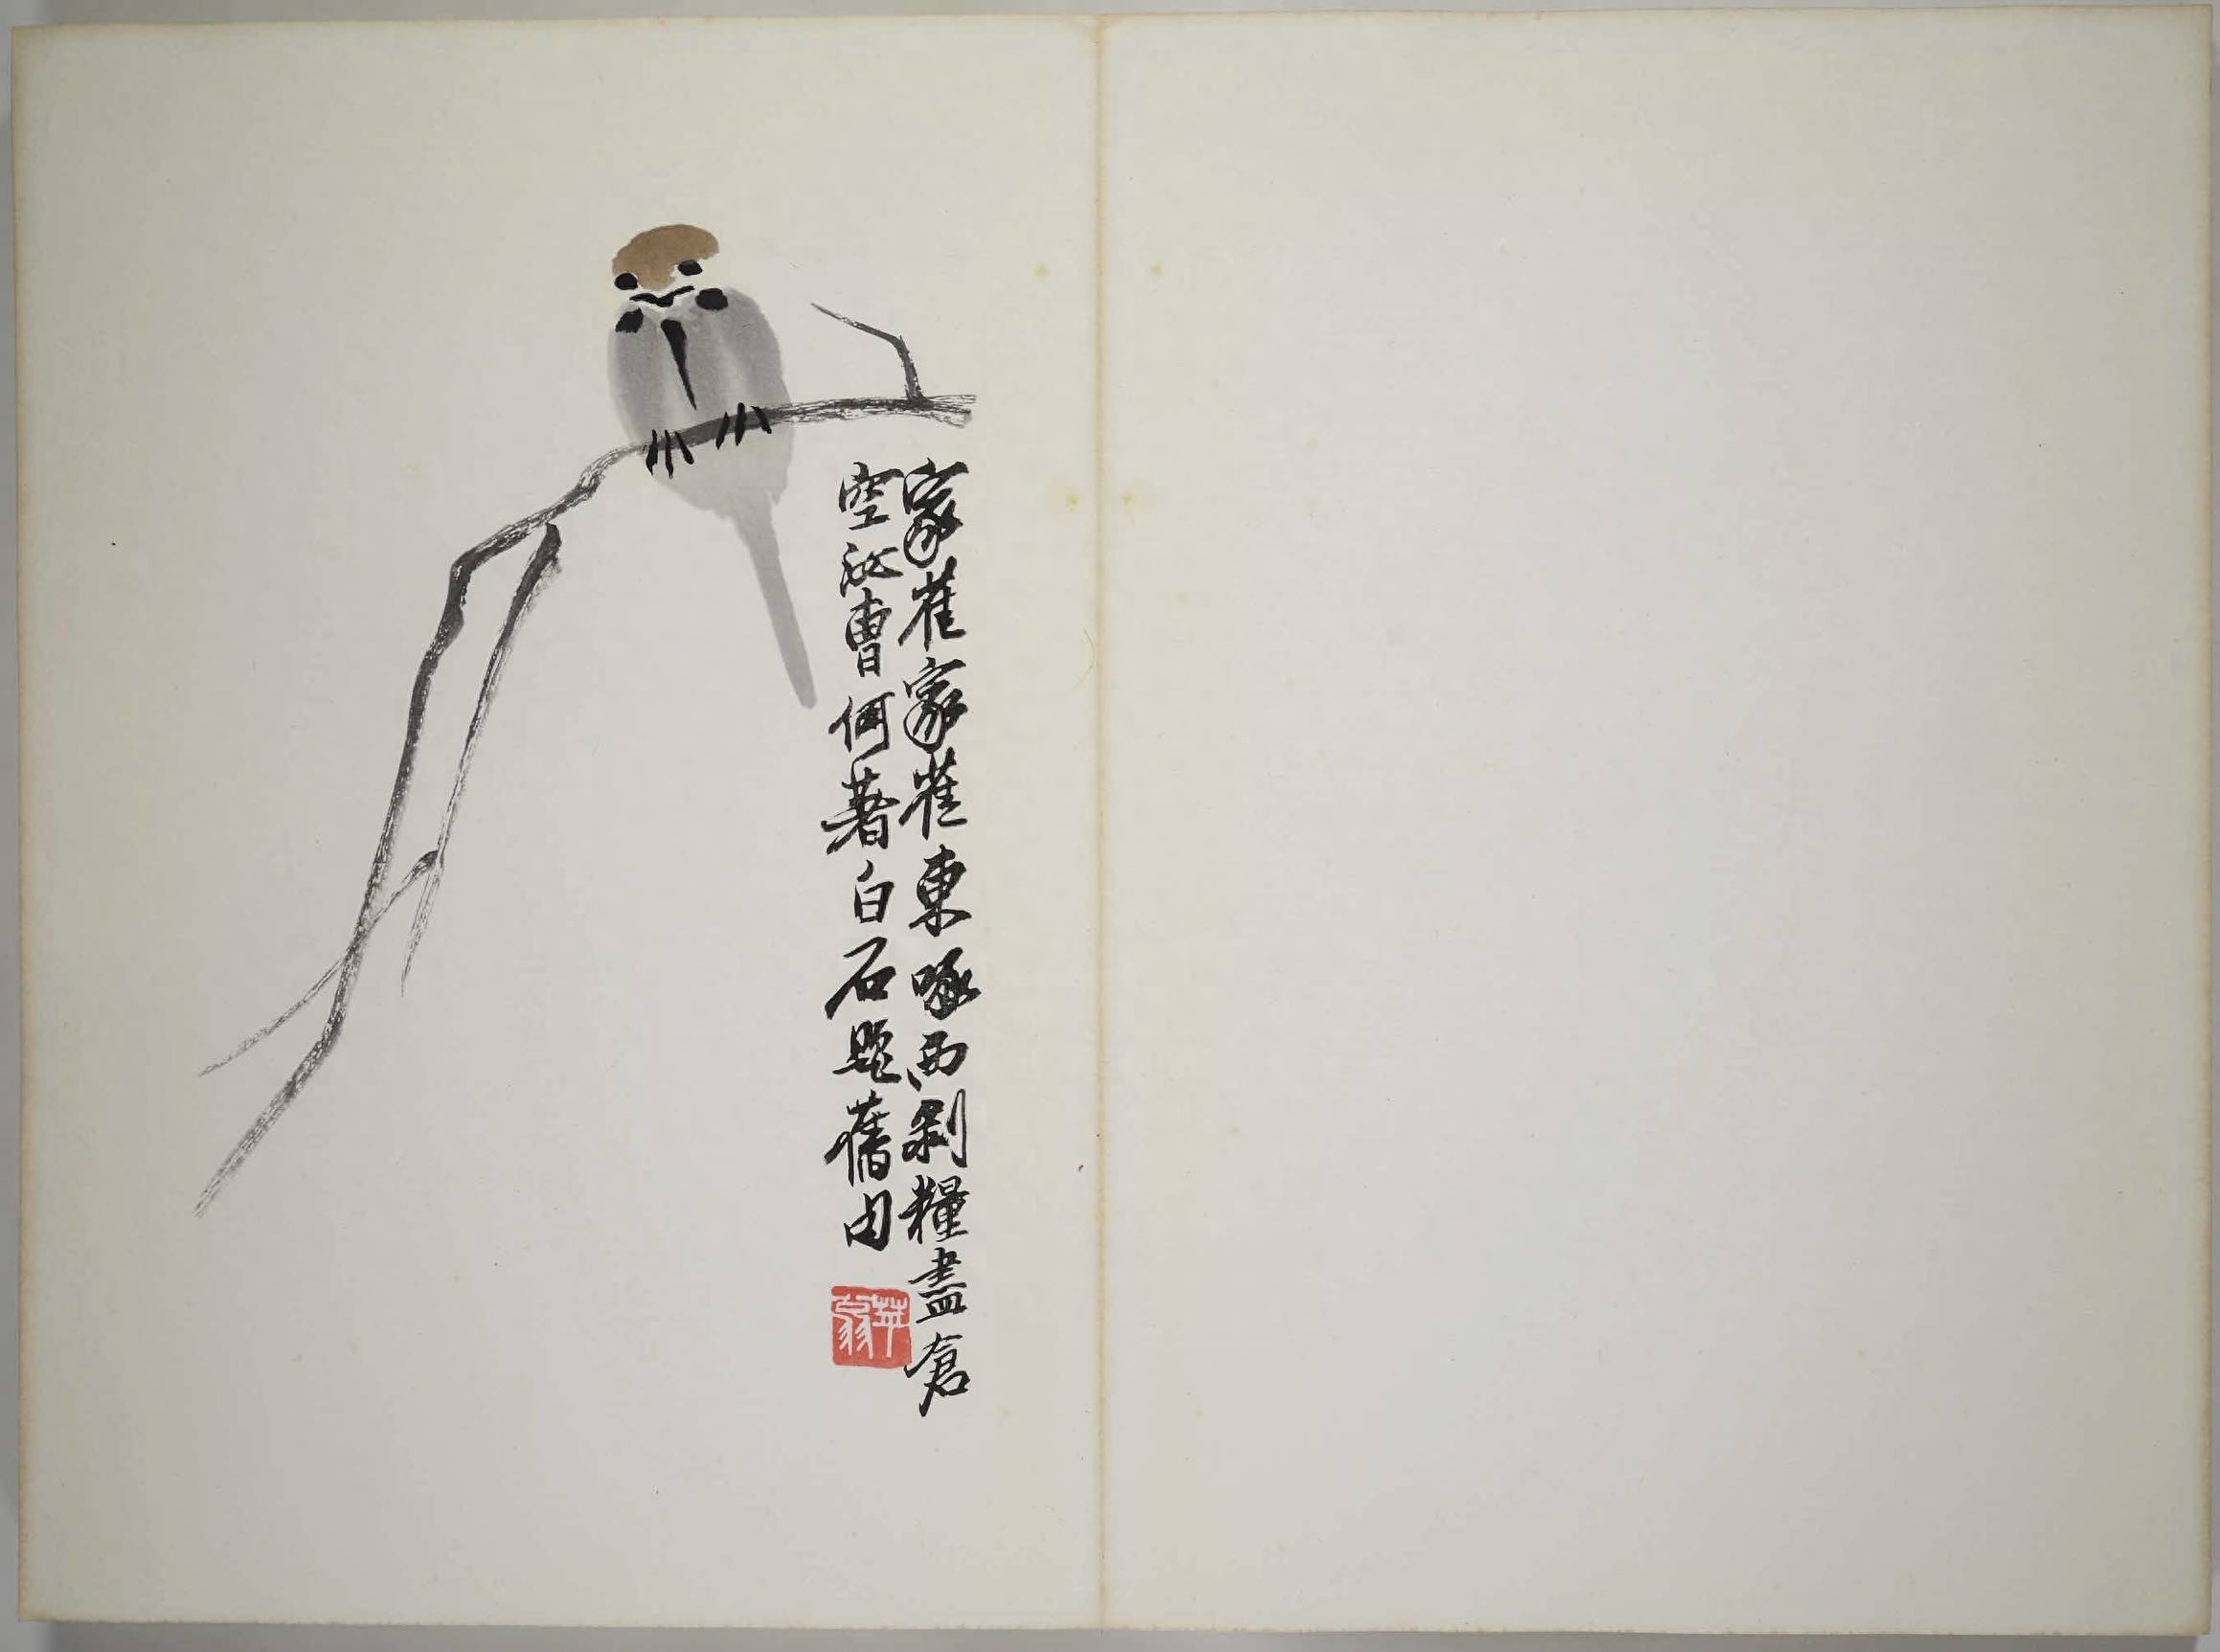 家雀家雀東啄西剝糧盡倉
空汝曹何著白石題舊句
木翁